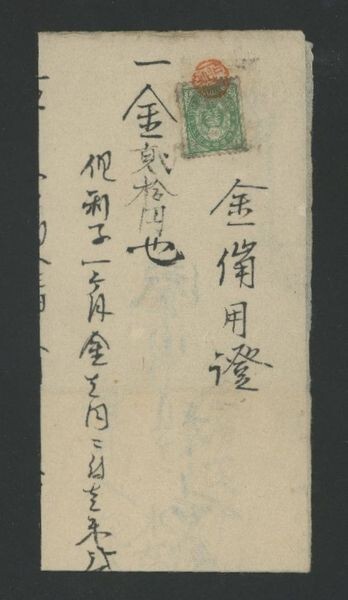 金備用證
一金貳拾円也
但利子一ヶ月金壱円ニ付壱